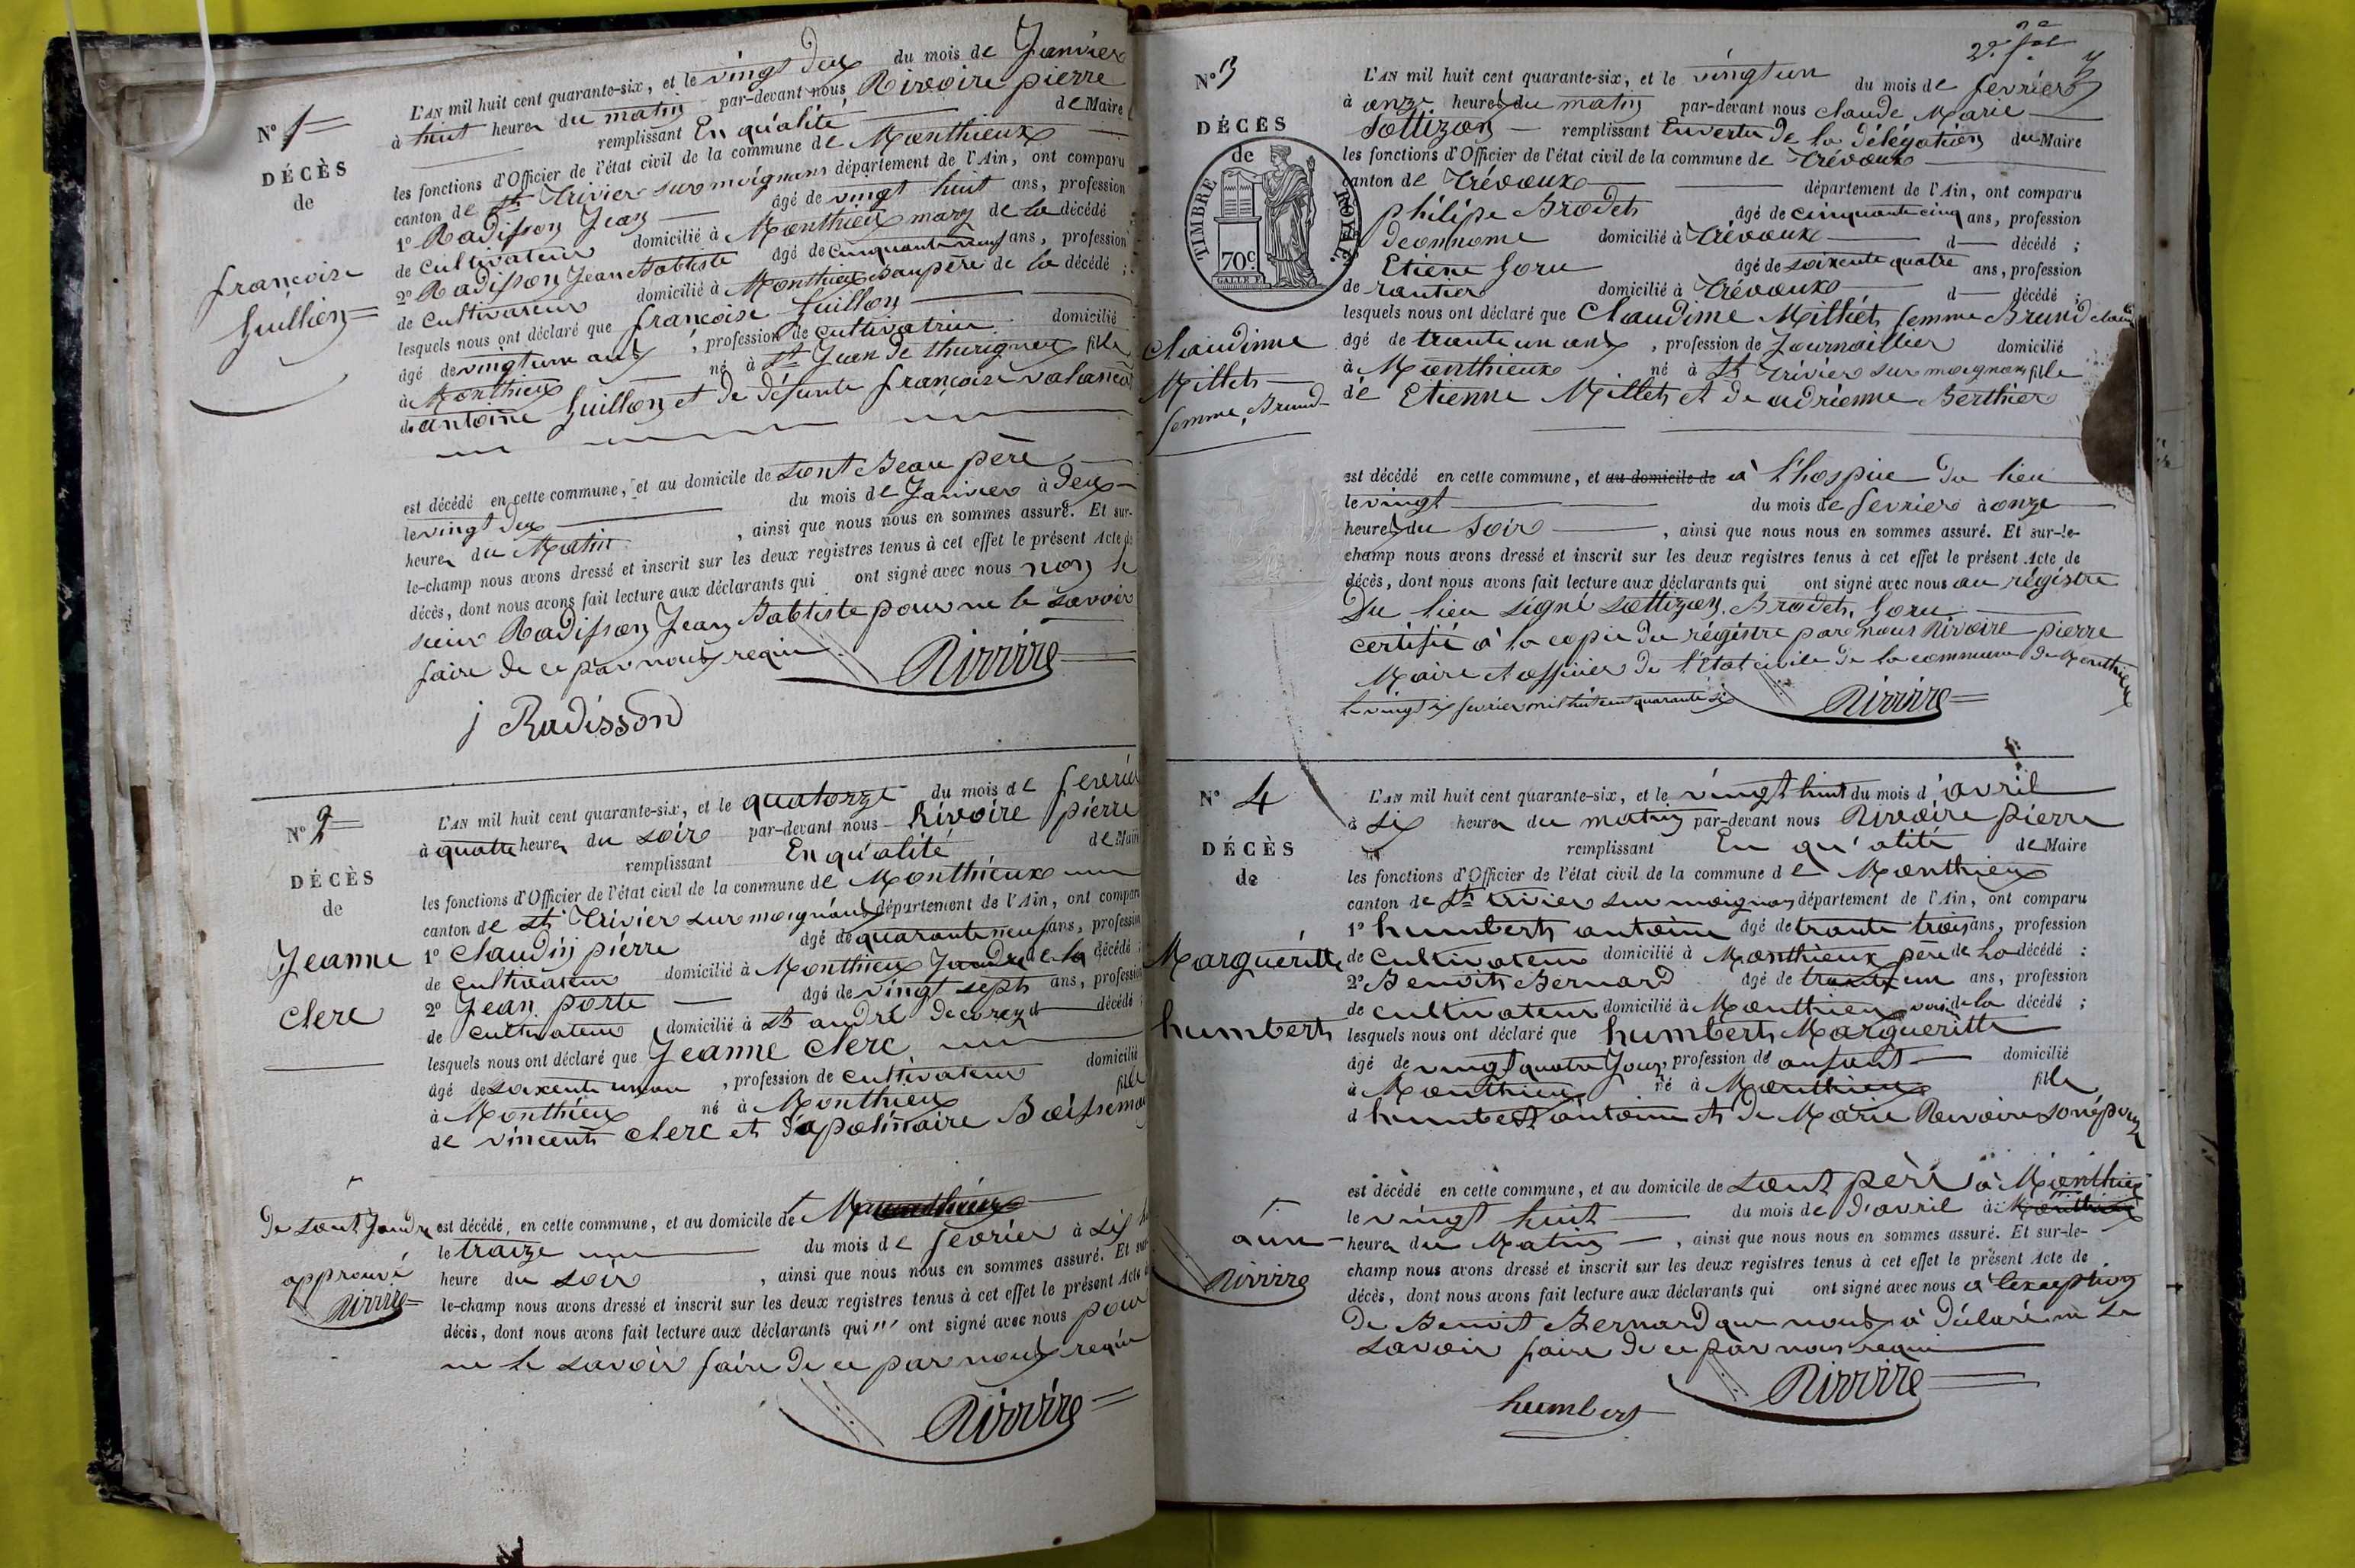 N° 1
DÉCÈS
de
françoise
Guillon
L'AN mil huit cent quarante-six, et le vingt deux du mois de Janvier
à huit heures du matin par-devant nous Rivoire pierre
remplissant En qu'alité de Maire
les fonctions d'Officier de l'état civil de la commune de Monthieux
canton de St Trivier sur moignans département de l'Ain, ont comparu
1° Radisson Jean âgé de vingt huit ans, profession
de Cultivateur domicilié à Monthieux mary de la décédé ;
2° Radisson Jean Babtiste âgé de cinquante neuf ans, profession
de Cultivateur domicilié à Monthieux Baupère de la décédé ;
lesquels nous ont déclaré que françoise Guillon
âgé de vingt un ans, profession de cultivatrice domicilié
à Monthieux né à St Jean de thurigneux fille
de antoine Guillon et de défunte françoise valancot
est décédé en cette commune, et au domicile de sont Beau père
le vingt deux du mois de Janvier à deux
heures du Matin, ainsi que nous nous en sommes assuré. Et sur-
le-champ nous avons dressé et inscrit sur les deux registres tenus à cet effet le présent Acte de
décès, dont nous avons fait lecture aux déclarants qui ont signé avec nous non le
sieur Radisson Jean Babtiste pour ne le savoir
faire de ce par nous requi
Rivoire
j Radisson
N° 2
DÉCÈS
de
Jeanne
Clerc
L'AN mil huit cent quarante-six, et le quatorze du mois de fevrier
à quatre heures du soir par-devant nous Rivoire pierre
remplissant En qu'alité de Maire
les fonctions d'Officier de l'état civil de la commune de Monthieux
canton de St Trivier sur moignans département de l'Ain, ont comparu
1° Claudin pierre âgé de quarante neuf ans, profession
de cultivateur domicilié à Monthieux Jandre de la décédé ;
2° Jean porte âgé de vingt sept ans, profession
de cultivateur domicilié à St andré decorcy d décédé ;
lesquels nous ont déclaré que Jeanne Clerc
âgé de soixente un an, profession de cultivateur domicilié
à Monthieux né à Monthieux fille
de vincent clerc et d'apolinaire
De sont Jandre
approuvé
Rivoire
est décédé en cette commune, et au domicile de Monthieux
le traize du mois de fevrier à six
heure du soir, ainsi que nous nous en sommes assuré. Et sur-
le-champ nous avons dressé et inscrit sur les deux registres tenus à cet effet le présent Acte de
décès, dont nous avons fait lecture aux déclarants qui ont signé avec nous pour
ne le savoir faire de ce par nous requi
Rivoire
N° 3
DÉCÈS
de
TIMBRE ROYAL.
70c
Claudinne
Millet
femme Brund
L'AN mil huit cent quarante-six, et le vingt un du mois de fevrier
à onze heures du matin par-devant nous claude Marie
Sottizon remplissant Envertu de la délégation du Maire
les fonctions d'Officier de l'état civil de la commune de Trévoux
canton de Trévoux département de l'Ain, ont comparu
philipe Brodet âgé de cinquante cinq ans, profession
deconnome domicilié à Trévoux d décédé ;
Etiene Goru âgé de soixente quatre ans, profession
de rantier domicilié à Trévoux d décédé ;
lesquels nous ont déclaré que Claudime Milliet femme Brund
âgé de trante un ans, profession de Journaillier domicilié
à Monthieux né à St Trivier sur moignans fille
de Etienne Millet et de adrienne Berthier
est décédé en cette commune, et au domicile de à l'hospice du lieu
le vingt du mois de fevrier à onze
heures du soir, ainsi que nous nous en sommes assuré. Et sur-le-
champ nous avons dressé et inscrit sur les deux registres tenus à cet effet le présent Acte de
décès, dont nous avons fait lecture aux déclarants qui ont signé avec nous au régistre
du lieu signé sottizon, Brodet, Goru
certifié à la copie du régistre par nous Rivoire pierre
Maire et officier de l'état civile de la commune de Monthieux
le vingt six fevrier mil huit cent quarante six
Rivoire
N° 4
DÉCÈS
de
Margueritte
humbert
L'AN mil huit cent quarante-six, et le vingt huit du mois d'avril
à six heures du matin par-devant nous Rivoire pierre
remplissant En qu'alité de Maire
les fonctions d'Officier de l'état civil de la commune de Monthieux
canton de St trivier sur moignans département de l'Ain, ont comparu
1° humbert antoine âgé de trante trois ans, profession
de Cultivateur domicilié à Monthieux père de la décédé :
2° Benoit Bernard âgé de trante un ans, profession
de cultivateur domicilié à Monthieux voisin de la décédé ;
lesquels nous ont déclaré que humbert Margueritte
âgé de vingt quatre Jour, profession de anfant domicilié
à Monthieux né à Monthieux fille
d humbert antoine et de Marie Revoire son épouze
est décédé en cette commune, et au domicile de sont père à Monthieux
le vingt huit du mois de d'avril à Monthieux
heures du Matin, ainsi que nous nous en sommes assuré. Et sur-le-
Rivoire
champ nous avons dressé et inscrit sur les deux registres tenus à cet effet le présent Acte de
décès, dont nous avons fait lecture aux déclarants qui ont signé avec nous à l'exception
de Benoit Bernard que nous à déclaré ne le
savoir faire de ce par nous requi
Rivoire
humbert